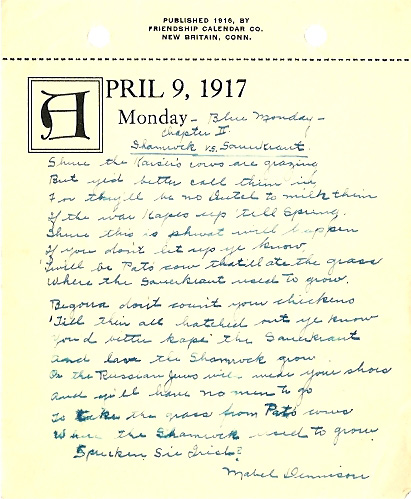 PUBLISHED 1916, BY
FRIENDSHIP CALENDAR CO.
NEW BRITAIN, CONN.
APRIL 9, 1917
Monday - Blue Monday -
Chapter II
Shamrock vs. Sauerkraut.
Shure the Kaiser's cows are grazing
But you'd better call them in,
For they'll be no Dutch to milk them
If the war kapes up 'till Spring.
Shure this is phwat will happen
If you don't let up ye know,
'Twill be Pats cow that'll ate the grass
Where the Sauerkraut used to grow.
Begorra don't count your chickens
'Till their all hatched out ye know
You'd better kape the Sauerkraut
And lave the Shamrock grow
Or the Russian Jews will wear your shoes
And ye'll have no men to go
To take the grass from Pats cows
Where the Shamrock used to grow.
Sprecken Sie Irish?
Mabel Dennison